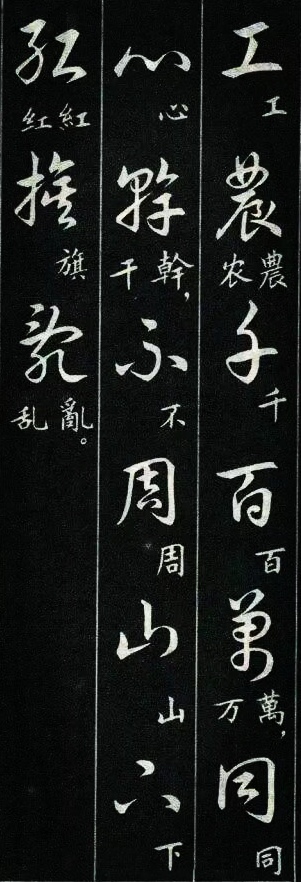 工農千百萬同
工 农農 千 百 万萬， 同
心幹不周山下
心 干幹， 不 周 山 下
紅旗亂
红紅 旗 乱亂。